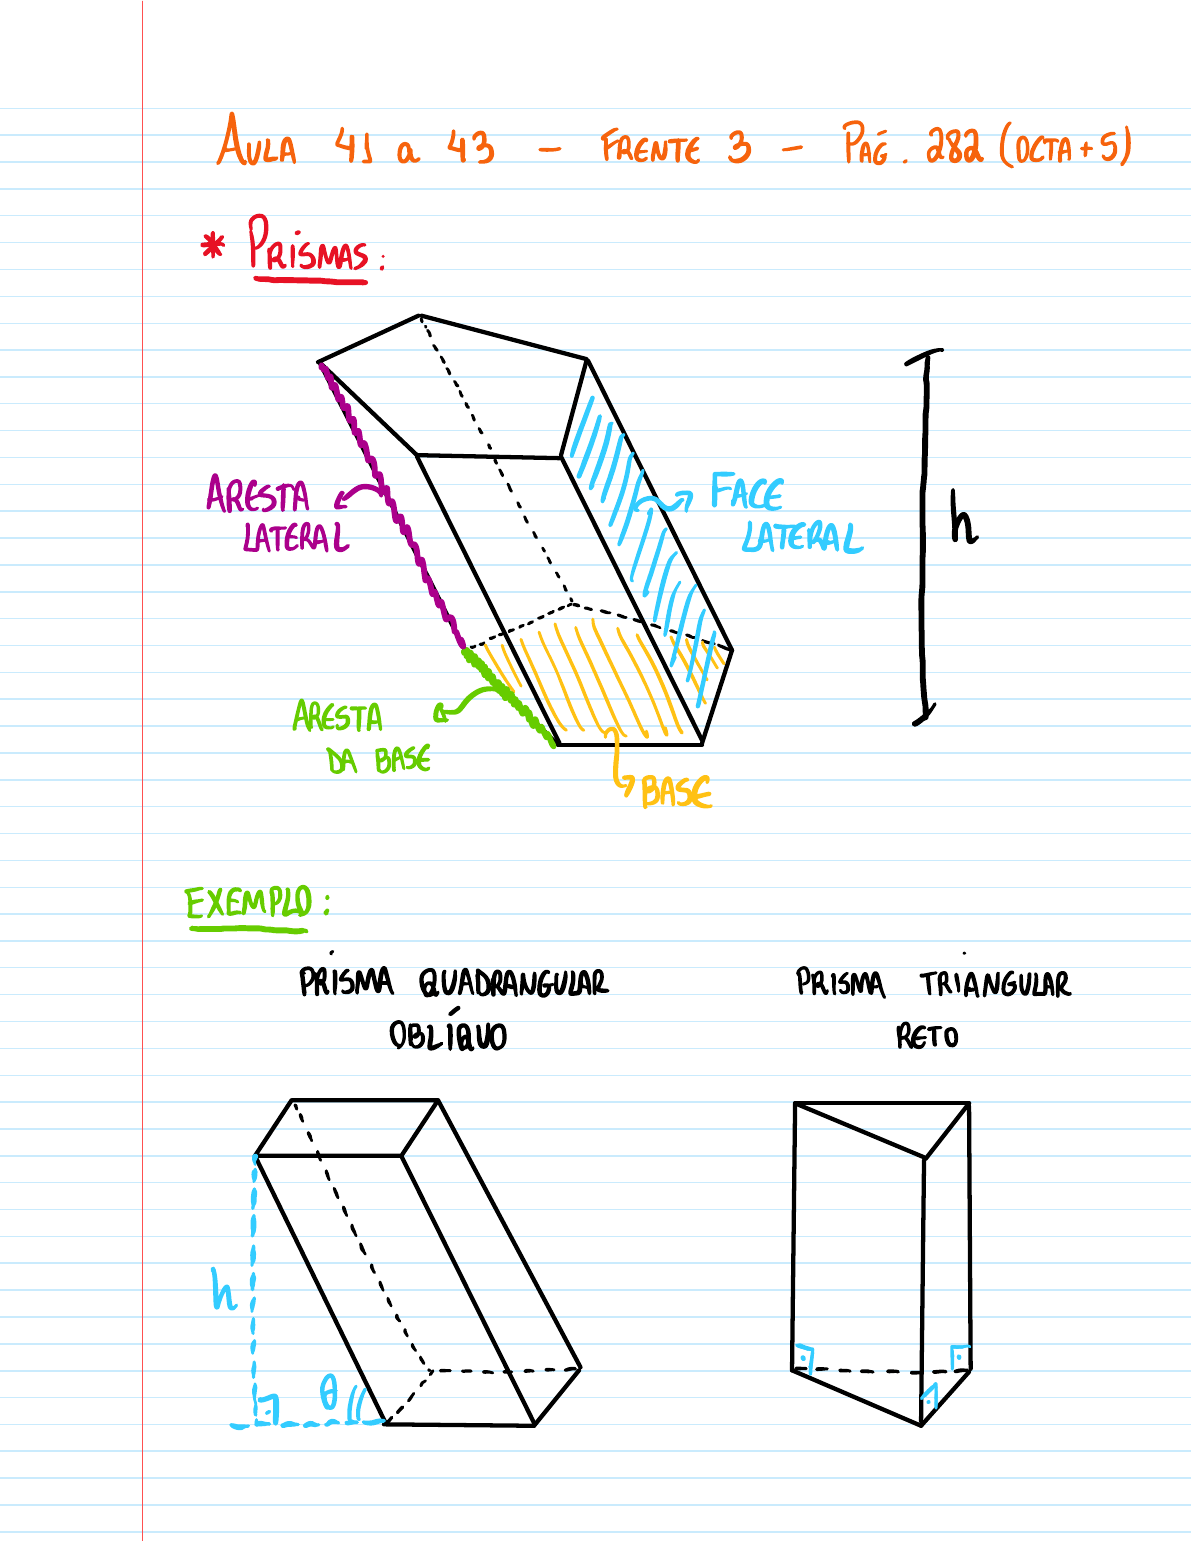 AULA 41 a 43 - FRENTE 3 - PÁG. 282 (OCTA + S)
* PRISMAS:
ARESTA
LATERAL
FACE
LATERAL
h
ARESTA
DA BASE
BASE
EXEMPLO:
PRISMA QUADRANGULAR
OBLÍQUO
PRISMA TRIANGULAR
RETO
h
θ